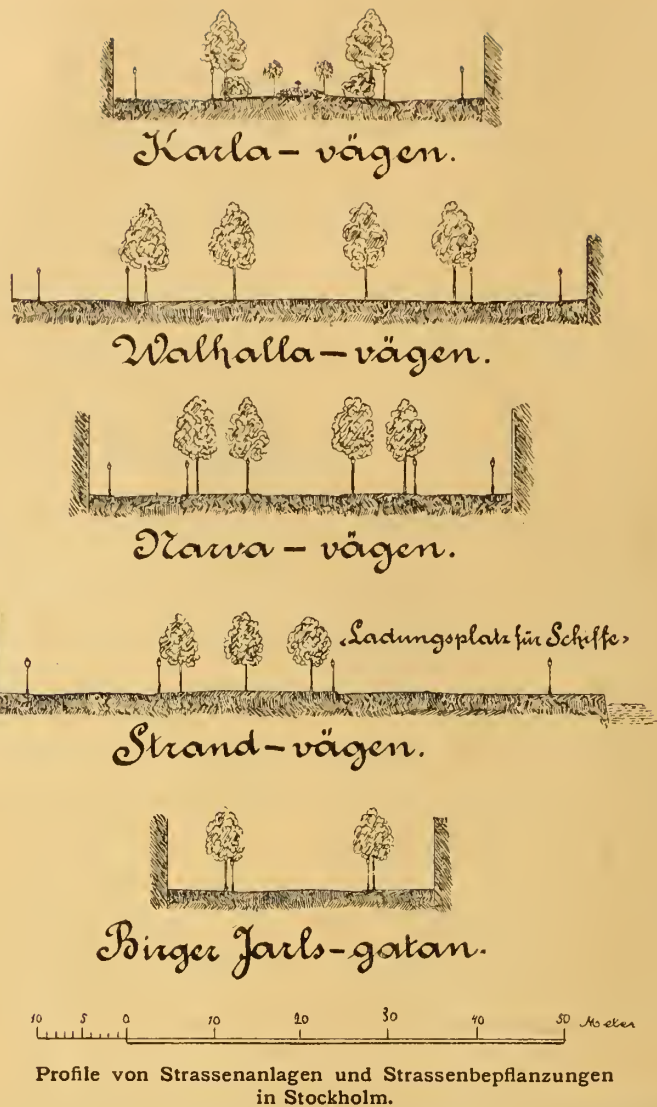 Karla-vägen.
Walhalla-vägen.
Narva-vägen.
‹Ladungsplatz für Schiffe›
Strand-vägen.
Birger Jarls-gatan.
10 5 0 10 20 30 40 50 Meter
Profile von Strassenanlagen und Strassenbepflanzungen
in Stockholm.